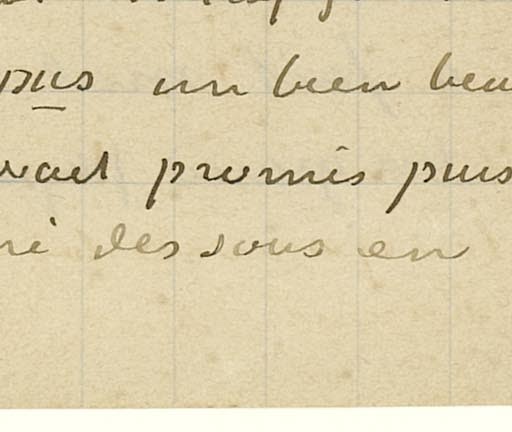 pus un bien beau
vait promis puis
des sous en